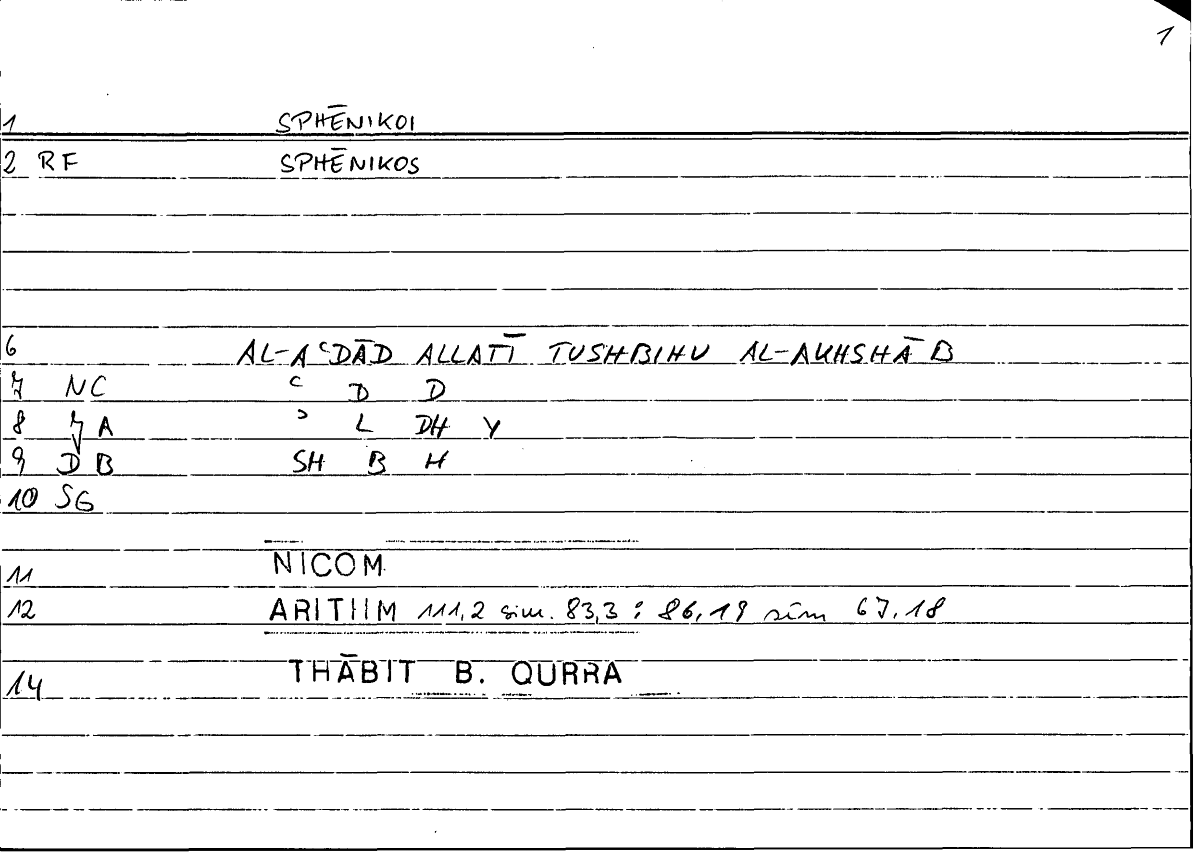 1
1 SPHĒNIKOI
2 RF SPHĒNIKOS
6 AL-AʿDĀD ALLATĪ TUSHBIHU AL-AUHSHĀB
7 NC ʿ D D
8 7A ʾ L DH Y
9 DB SH B H
10 SG
11 NICOM
12 ARITHM 111,2 sim. 83,3 : 86,19 sim 67,18
14 THĀBIT B. QURRA